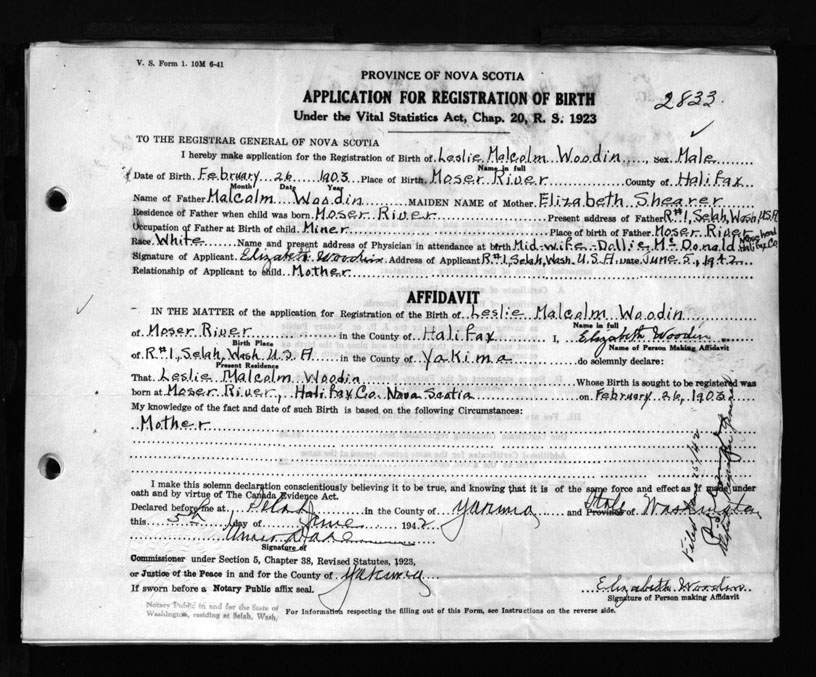 V. S. Form 1. 10M 6-41
PROVINCE OF NOVA SCOTIA
APPLICATION FOR REGISTRATION OF BIRTH
2833
Under the Vital Statistics Act, Chap. 20, R. S. 1923
TO THE REGISTRAR GENERAL OF NOVA SCOTIA
I hereby make application for the Registration of Birth of Leslie Malcolm Woodin, Sex Male
Name in full
Date of Birth February 26 1903 Place of Birth Moser River County of Halifax
Month Date Year
Name of Father Malcolm Woodin MAIDEN NAME of Mother Elizabeth Shearer
Residence of Father when child was born Moser River Present address of Father R#1, Selah, Wash, USA
Occupation of Father at Birth of child Miner Place of birth of Father Moser River
Race White Name and present address of Physician in attendance at birth Mid-wife - Dollie McDonald Halifax Co
Signature of Applicant Elizabeth Woodin Address of Applicant R#1, Selah, Wash. U.S.A. Date June 5, 1942
Relationship of Applicant to child Mother
AFFIDAVIT
IN THE MATTER of the application for Registration of the Birth of Leslie Malcolm Woodin
Name in full
of Moser River in the County of Halifax I, Elizabeth Woodin
Birth Place Name of Person Making Affidavit
of R#1, Selah, Wash. U.S.A in the County of Yakima do solemnly declare:
Present Residence
That Leslie Malcolm Woodin Whose Birth is sought to be registered was
born at Moser River, Halifax Co. Nova Scotia on February 26, 1903
My knowledge of the fact and date of such Birth is based on the following Circumstances:
Mother
I make this solemn declaration conscientiously believing it to be true, and knowing that it is of the same force and effect as if made under
oath and by virtue of The Canada Evidence Act.
Declared before me at Selah in the County of Yakima and State Province of Washington
this 5th day of June 1942
Signature of
Commissioner under Section 5, Chapter 38, Revised Statutes, 1923,
or Justice of the Peace in and for the County of Yakima
If sworn before a Notary Public affix seal.
Elizabeth Woodin
Signature of Person making Affidavit
Notary Public in and for the State of
Washington, residing at Selah, Wash.
For Information respecting the filling out of this Form, see Instructions on the reverse side.